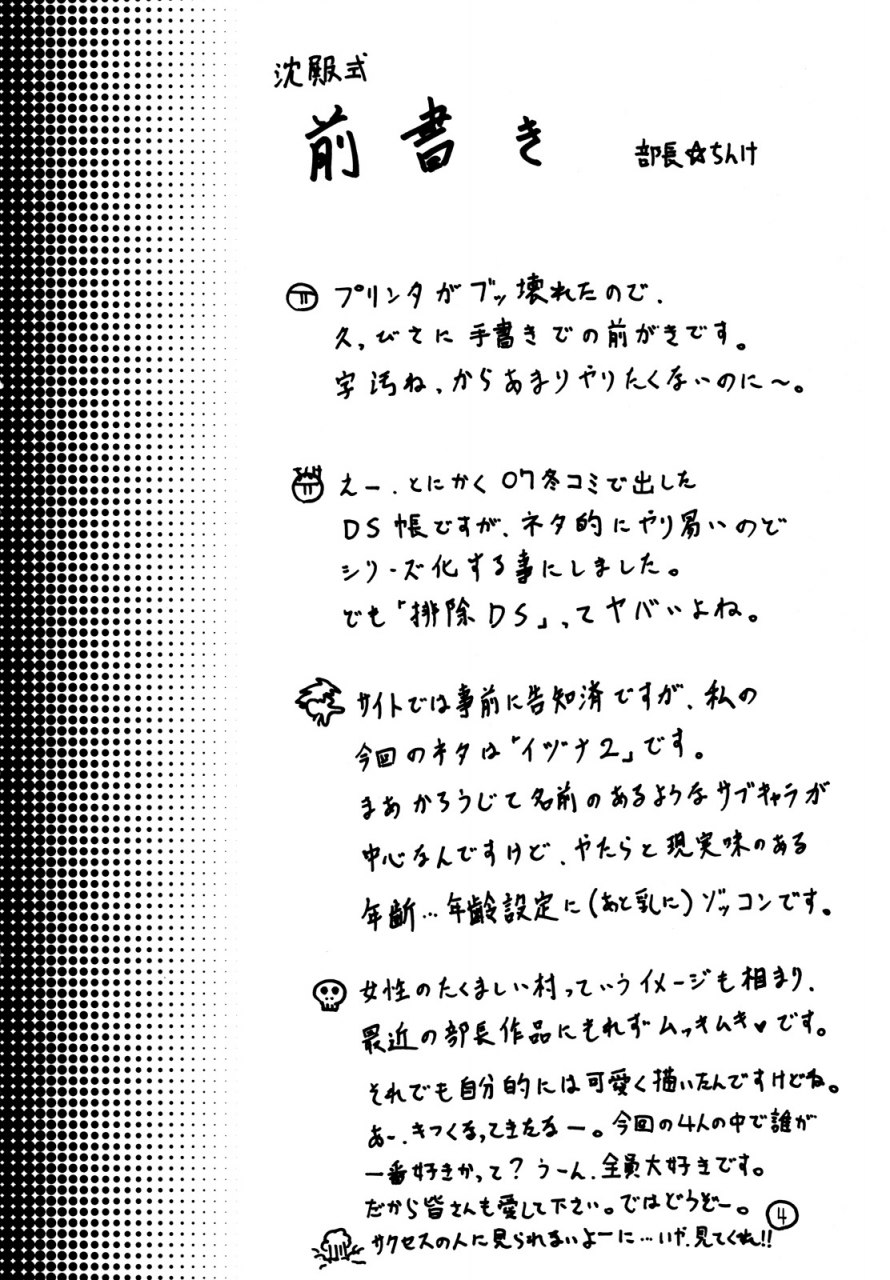 沈殿式
前書き
部長☆ちんけ
プリンタがブッ壊れたので、
久っびさに手書きでの前がきです。
字汚ねっからあまりやりたくないのに～。
えー、とにかく07冬コミで出した
DS帳ですが、ネタ的にやり易いので
シリーズ化する事にしました。
でも「排除DS」ってヤバいよね。
サイトでは事前に告知済ですが、私の
今回のネタは「イヅナ2」です。
まあかろうじて名前のあるようなサブキャラが
中心なんですけど、やたらと現実味のある
年齢…年齢設定に(あと乳に)ゾッコンです。
女性のたくましい村っていうイメージも相まり、
最近の部長作品にもれずムッキムキ♥です。
それでも自分的には可愛く描いたんですけどね。
あー、きつくなってきたなー。今回の4人の中で誰が
一番好きかって?うーん、全員大好きです。
だから皆さんも愛して下さい。ではどうぞー。
④
サクセスの人に見られないよーに…いや、見てくれ!!